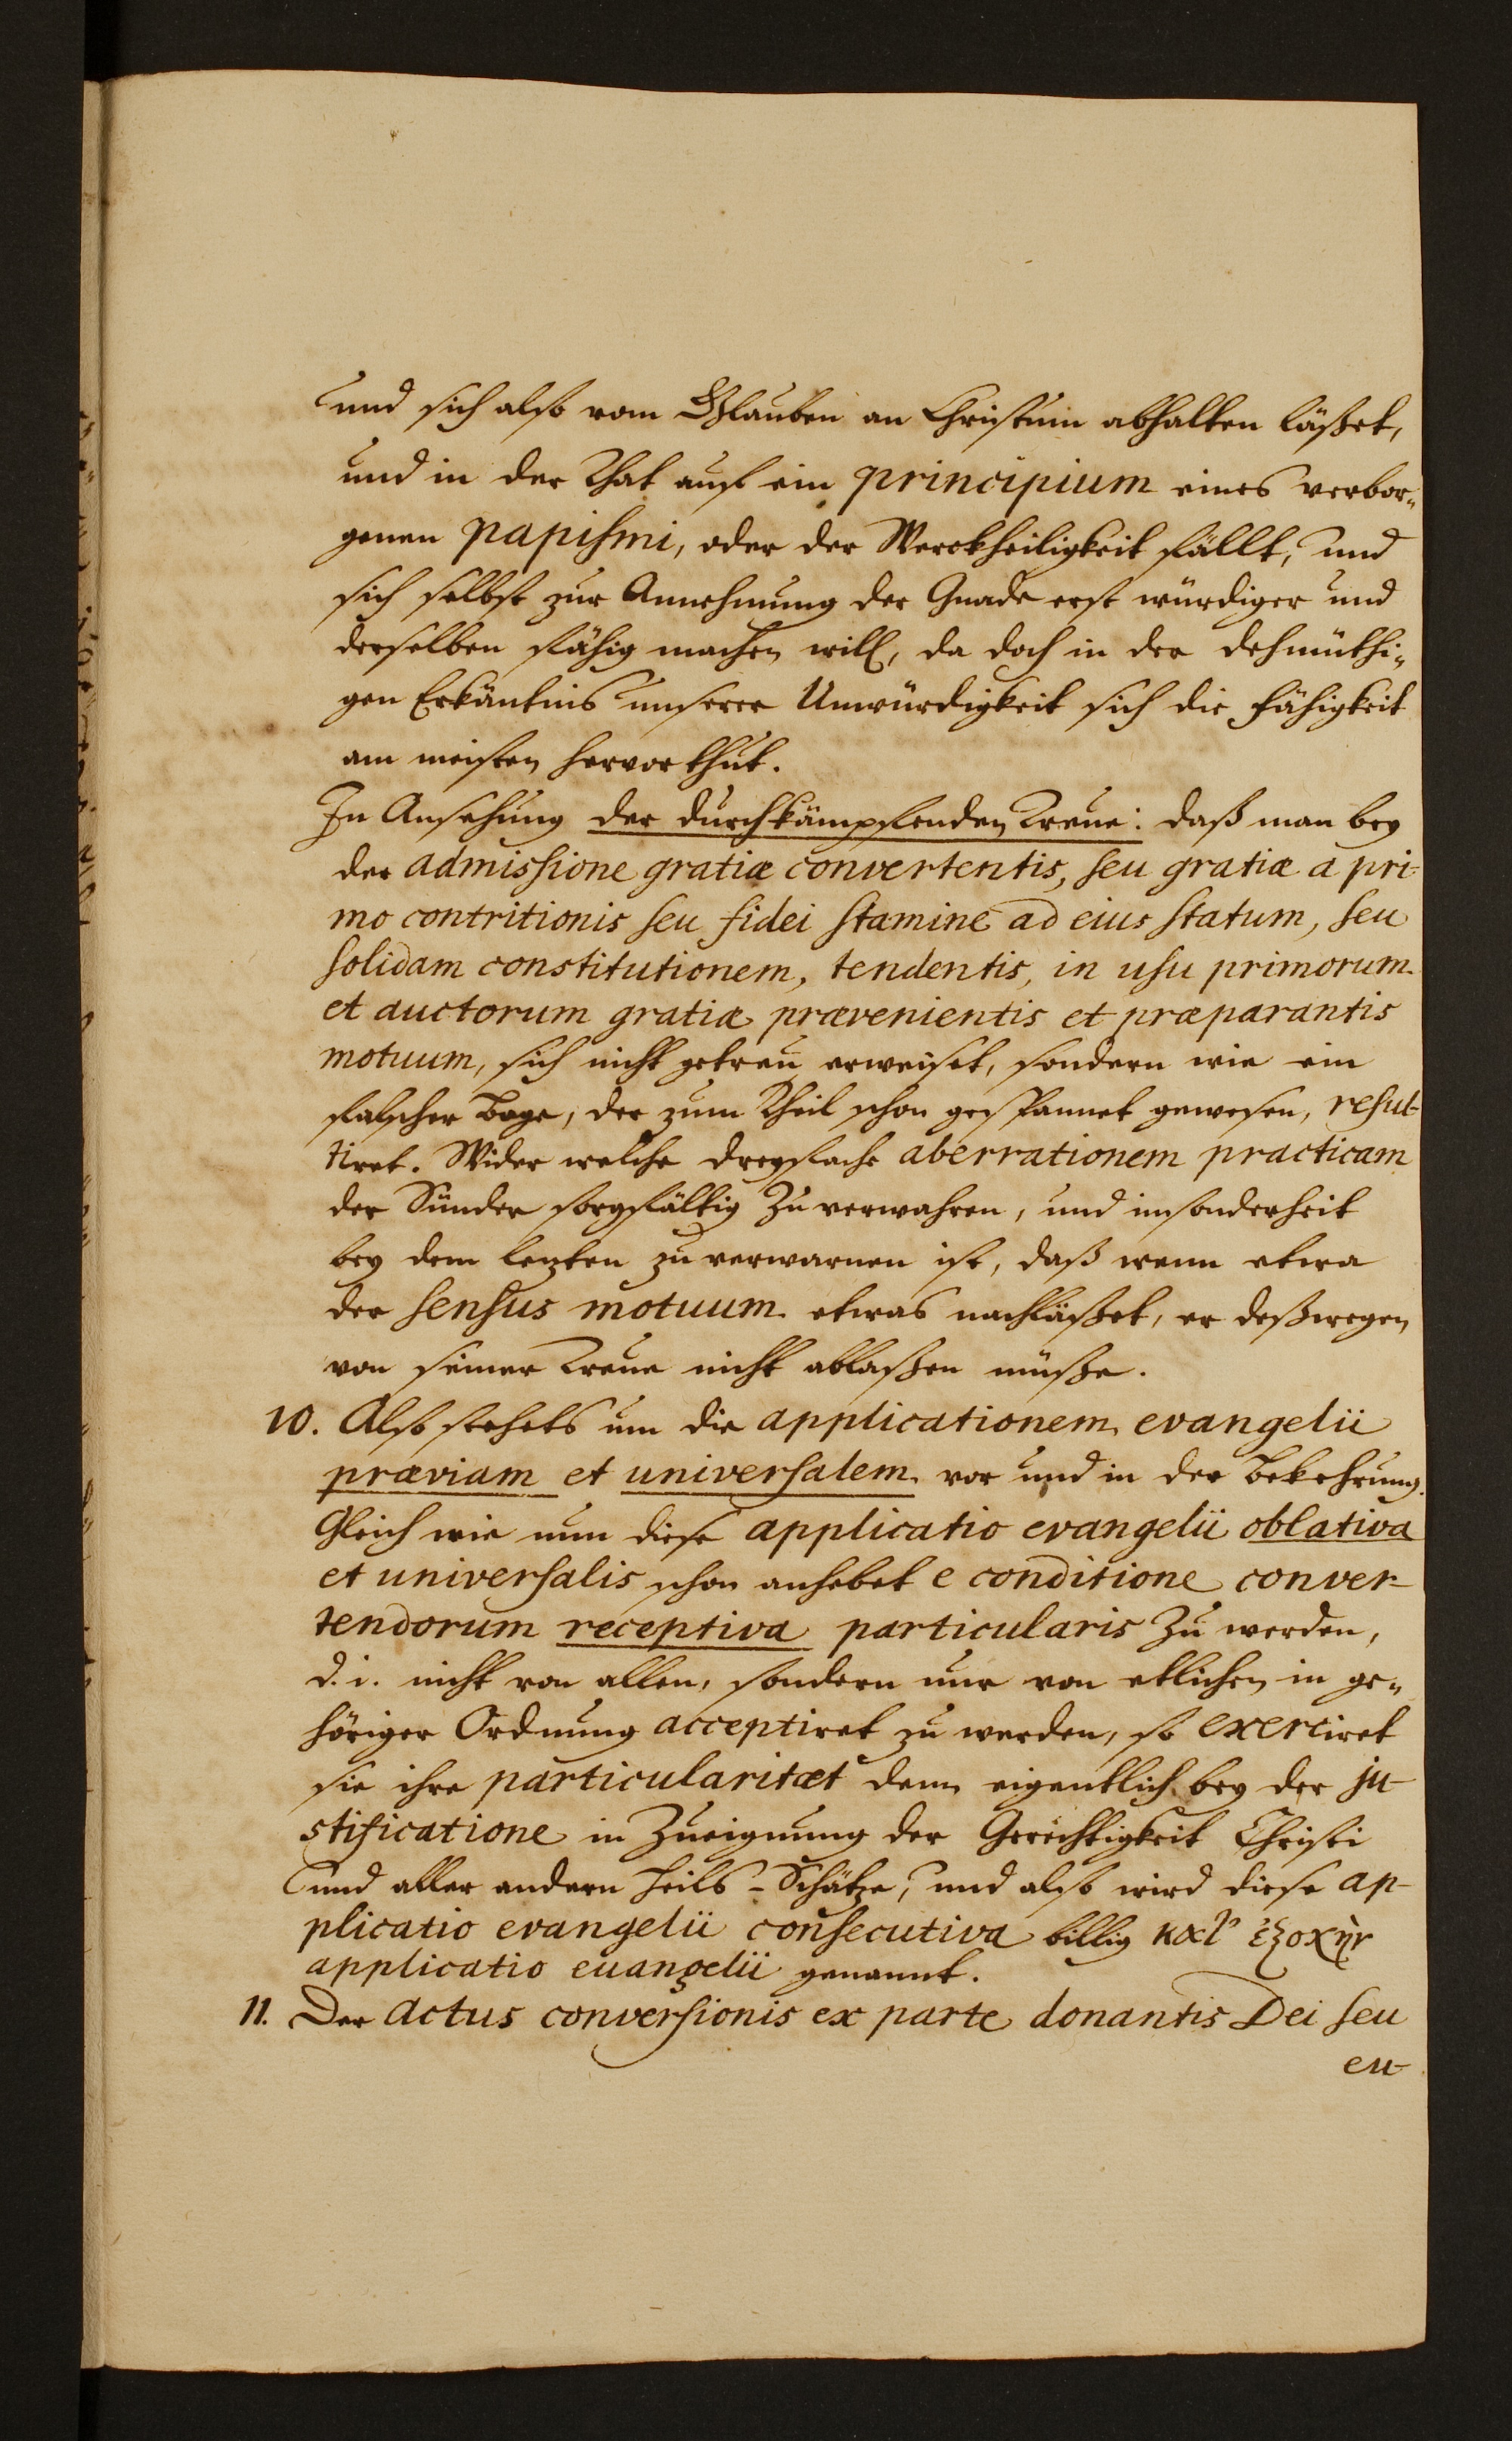 und sich also vom Glauben an Christum abhalten läßet,
und in der That auf ein principium eines verbor-
genen papismi, oder der Werckheiligkeit fällt, und
sich selbst zur Annehmung der Gnade erst würdiger und
derselben fähig machen will, da doch in der dehmüthi-
gen Erkäntnis unserer Unwürdigkeit sich die Fähigkeit
am meisten hervor thut.
In Ansehung der durchkämpfenden Treue: daß man bey
der admissione gratiæ convertentis, seu gratiæ a pri-
mo contritionis seu fidei stamine ad eius statum, seu
solidam constitutionem, tendentis, in usu primorum
et auctorum gratiæ prævenientis et præparantis
motuum, sich nicht getreu erweiset, sondern wie ein
falscher Boge, der zum Theil schon gespannet gewesen, resul-
tiret. Wider welche dreyfache aberrationem practicam
der Sünder sorgfältig zu verwahren, und insonderheit
bey dem lezten zu verwarnen ist, daß wenn etwa
der sensus motuum etwas nachläßet, er deßwegen
von seiner Treue nicht ablaßen müße.
10. Also stehets um die applicationem evangelii
præviam et universalem vor und in der Bekehrung.
Gleich wie nun diese applicatio evangelii oblativa
et universalis schon anhebet e conditione conver-
tendorum receptiva particularis zu werden,
d. i. nicht von allen, sondern nur von etlichen in ge-
höriger Ordnung acceptiret zu werden, so exerciret
sie ihre particularitæt denn eigentlich bey der ju-
stificatione in Zueignung der Gerechtigkeit Christi
und aller andern Heils-Schätze, und also wird diese ap-
plicatio evangelii consecutiva billig κατ' ἐξοχὴν
applicatio euangelii genannt.
11. Der actus conversionis ex parte donantis Dei seu
eu-